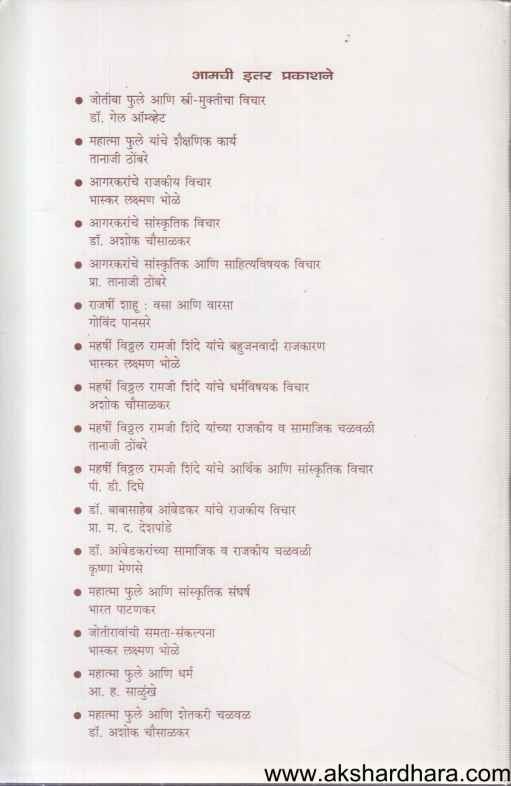 आमची इतर प्रकाशने
● जोतीबा फुले आणि स्त्री-मुक्तीचा विचार
डॉ. गेल ऑम्व्हेट
● महात्मा फुले यांचे शैक्षणिक कार्य
तानाजी ठोंबरे
● आगरकरांचे राजकीय विचार
भास्कर लक्ष्मण भोळे
● आगरकरांचे सांस्कृतिक विचार
डॉ. अशोक चौसाळकर
● आगरकरांचे सांस्कृतिक आणि साहित्यविषयक विचार
प्रा. तानाजी ठोंबरे
● राजर्षी शाहू : वसा आणि वारसा
गोविंद पानसरे
● महर्षी विठ्ठल रामजी शिंदे यांचे बहुजनवादी राजकारण
भास्कर लक्ष्मण भोळे
● महर्षी विठ्ठल रामजी शिंदे यांचे धर्मविषयक विचार
अशोक चौसाळकर
● महर्षी विठ्ठल रामजी शिंदे यांच्या राजकीय व सामाजिक चळवळी
तानाजी ठोंबरे
● महर्षी विठ्ठल रामजी शिंदे यांचे आर्थिक आणि सांस्कृतिक विचार
पी. डी. दिघे
● डॉ. बाबासाहेब आंबेडकर यांचे राजकीय विचार
प्रा. म. द. देशपांडे
● डॉ. आंबेडकरांच्या सामाजिक व राजकीय चळवळी
कृष्णा मेणसे
● महात्मा फुले आणि सांस्कृतिक संघर्ष
भारत पाटणकर
● जोतीरावांची समता-संकल्पना
भास्कर लक्ष्मण भोळे
● महात्मा फुले आणि धर्म
आ. ह. साळुंखे
● महात्मा फुले आणि शेतकरी चळवळ
डॉ. अशोक चौसाळकर
www.akshardhara.com